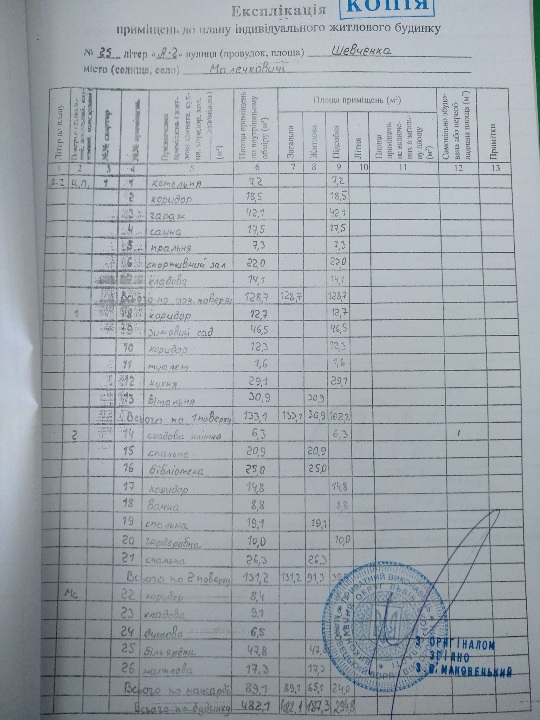 Експлікація
КОПІЯ
приміщень до плану індивідуального житлового будинку
№ 35 літер «А-2» вулиця (провулок, площа) Шевченка
місто (селище, село) Малечковичі
Літер по плану
Площа приміщень по внутрішньому обміру (м²)
Площа приміщень (м²)
Загальна
Житлова
Підсобна
Літня
Примітки
1 2 3 4 5 6 7 8 9 10 11 12 13
А-2 ц.п. 1 1 котельня 7,2 7,2
2 коридор 18,5 18,5
3 гараж 42,1 42,1
4 сауна 17,5 17,5
5 пральня 7,3 7,3
6 спортивний зал 22,0 22,0
7 кладова 14,1 14,1
Всього по цок. поверху 128,7 128,7 128,7
1 8 коридор 12,7 12,7
9 зимовий сад 46,5 46,5
10 коридор 12,3 12,3
11 туалет 1,6 1,6
12 кухня 29,1 29,1
13 вітальня 30,9 30,9
Всього по 1 поверху 133,1 133,1 30,9 102,2
2 14 сходова клітка 6,3 6,3
15 спальна 20,9 20,9
16 бібліотека 25,0 25,0
17 коридор 14,8 14,8
18 ванна 8,8 8,8
19 спальна 19,1 19,1
20 гардеробна 10,0 10,0
21 спальна 26,3 26,3
Всього по 2 поверху 131,2 131,2 91,3
Мс 22 коридор 8,4
23 кладова 9,1
24 душова 6,5
25 більярдна 47,8 47,8
26 житлова 17,3 17,3
Всього по мансарді 89,1 89,1 65,1 24,0
Всього по будинку 482,1 482,1 187,3 294,8
З ОРИГІНАЛОМ
ЗГІДНО
З. В. МАКОВЕЦЬКИЙ